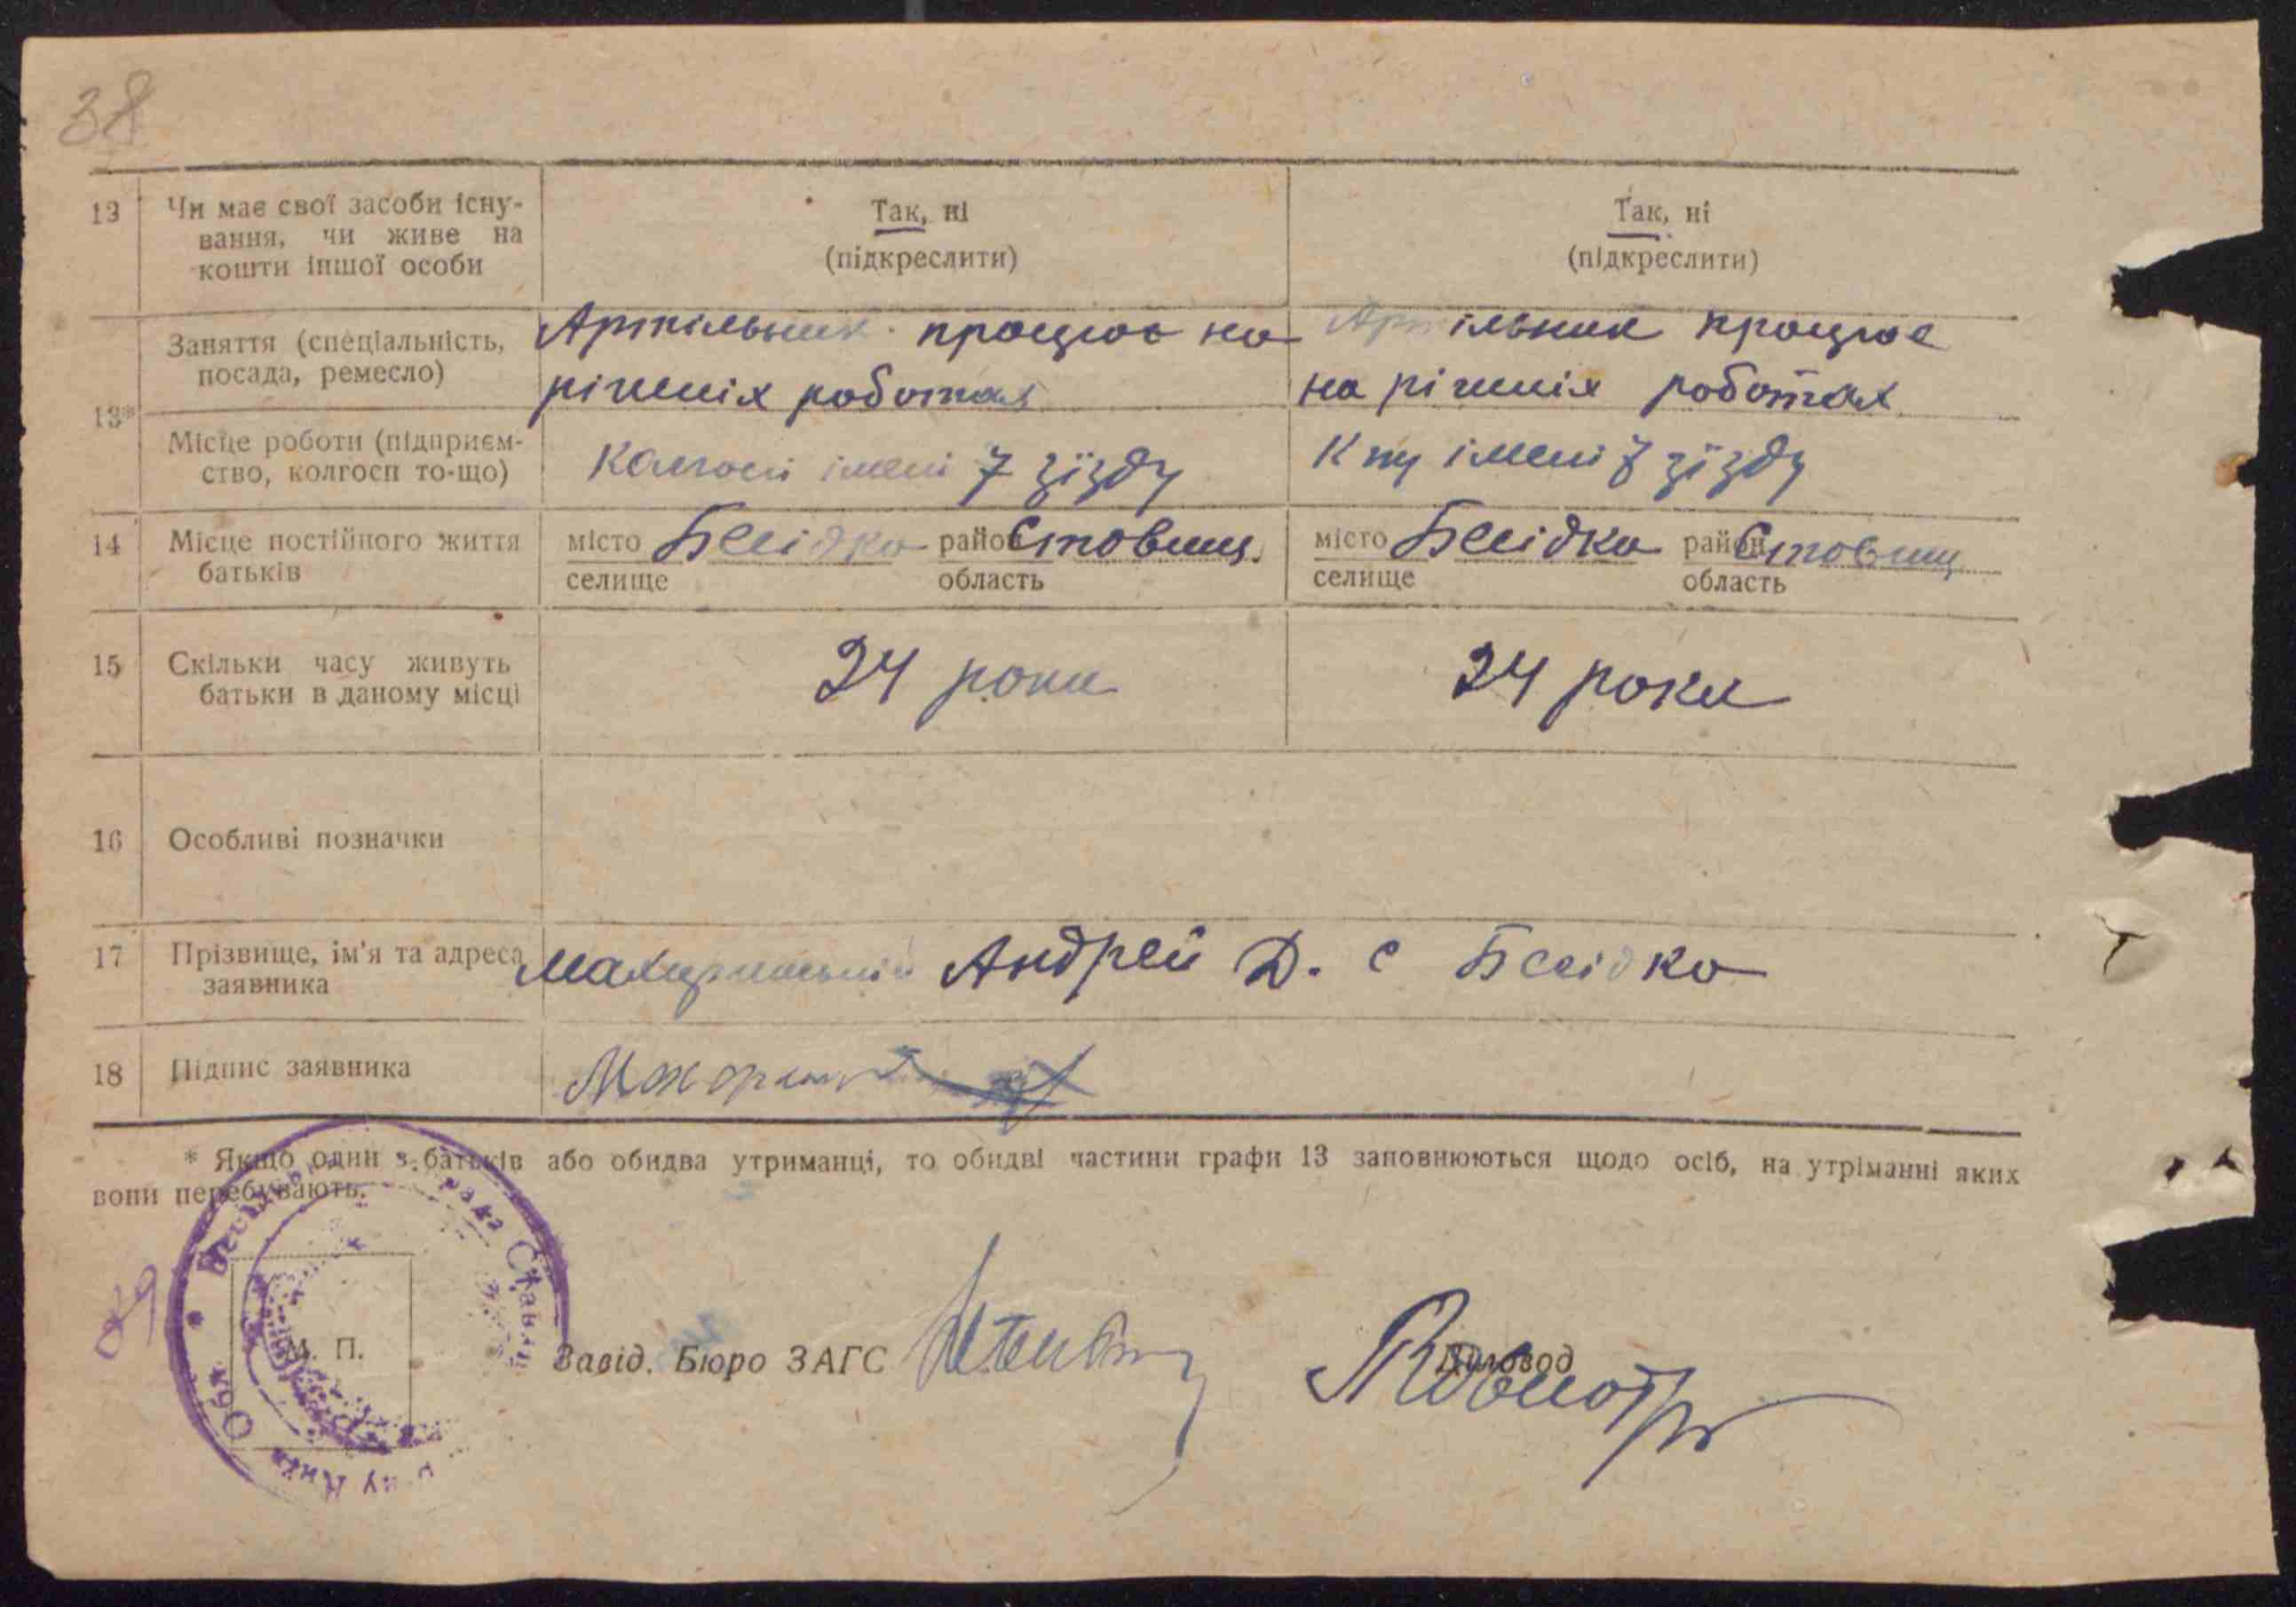 38
13 Чи має свої засоби існу- Так, ні Так, ні
вання, чи живе на (підкреслити) (підкреслити)
кошти іншої особи
13* Заняття (спеціальність, Артільник працює на Артільник працює
посада, ремесло) різних роботах на різних роботах
Місце роботи (підприєм- Колгосп імені 7 зїзду К імені 7 зїзду
ство, колгосп то-що)
14 Місце постійного життя місто Бесідка район Ставищ. місто Бесідка район Ставищ
батьків селище область селище область
15 Скільки часу живуть 24 роки 24 роки
батьки в даному місці
16 Особливі позначки
17 Прізвище, ім'я та адреса Андрей Д. с Бесідка
заявника
18 Підпис заявника
* Якщо один з батьків або обидва утриманці, то обидві частини графи 13 заповнюються щодо осіб, на утріманні яких
вони перебувають.
рада Став
Обл.
М. П.
Завід. Бюро ЗАГС Діловод